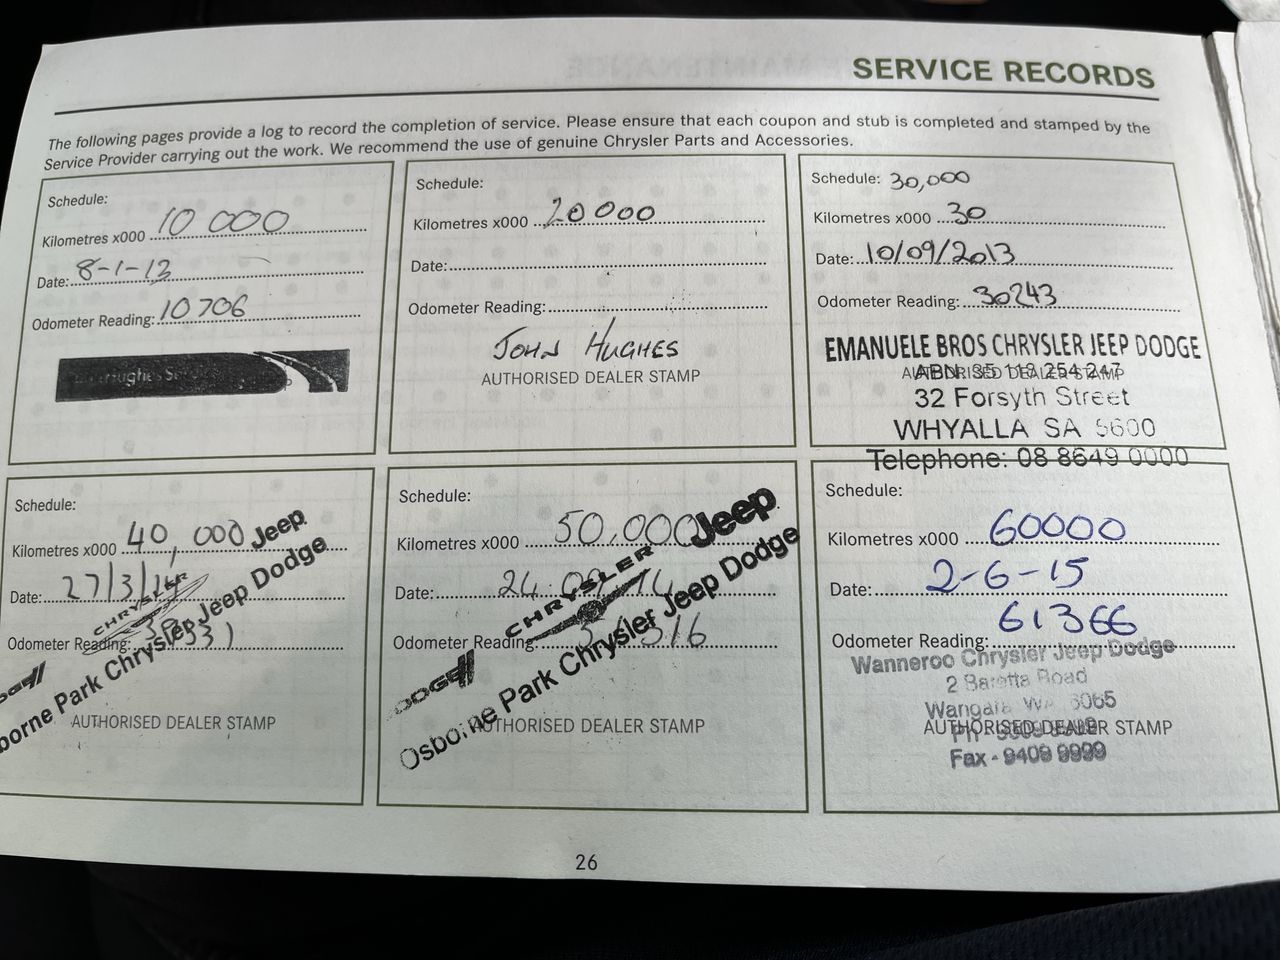 SERVICE RECORDS
The following pages provide a log to record the completion of service. Please ensure that each coupon and stub is completed and stamped by the
Service Provider carrying out the work. We recommend the use of genuine Chrysler Parts and Accessories.
Schedule:
Kilometres x000 10 000
Date: 8-1-13
Odometer Reading: 10706
Hughes
Schedule:
Kilometres x000 20 000
Date:
Odometer Reading:
JOHN HUGHES
AUTHORISED DEALER STAMP
Schedule: 30,000
Kilometres x000 30
Date: 10/09/2013
Odometer Reading: 30243
EMANUELE BROS CHRYSLER JEEP DODGE
AUTHORISED DEALER STAMP
ABN 35 113 254 247
32 Forsyth Street
WHYALLA SA 5600
Telephone: 08 8649 0000
Schedule:
Kilometres x000 40,000
Date: 27/3/14
Odometer Reading:
Jeep
CHRYSLER
borne Park Chrysler Jeep Dodge
AUTHORISED DEALER STAMP
Schedule:
Kilometres x000 50,000
Date: 24.09.14
Odometer Reading:
Jeep
CHRYSLER
DODGE
Osborne Park Chrysler Jeep Dodge
AUTHORISED DEALER STAMP
Schedule:
Kilometres x000 60000
Date: 2-6-15
Odometer Reading: 61366
Wanneroo Chrysler Jeep Dodge
2 Baretta Road
Wangara WA 6065
AUTHORISED DEALER STAMP
Fax - 9409 9999
26